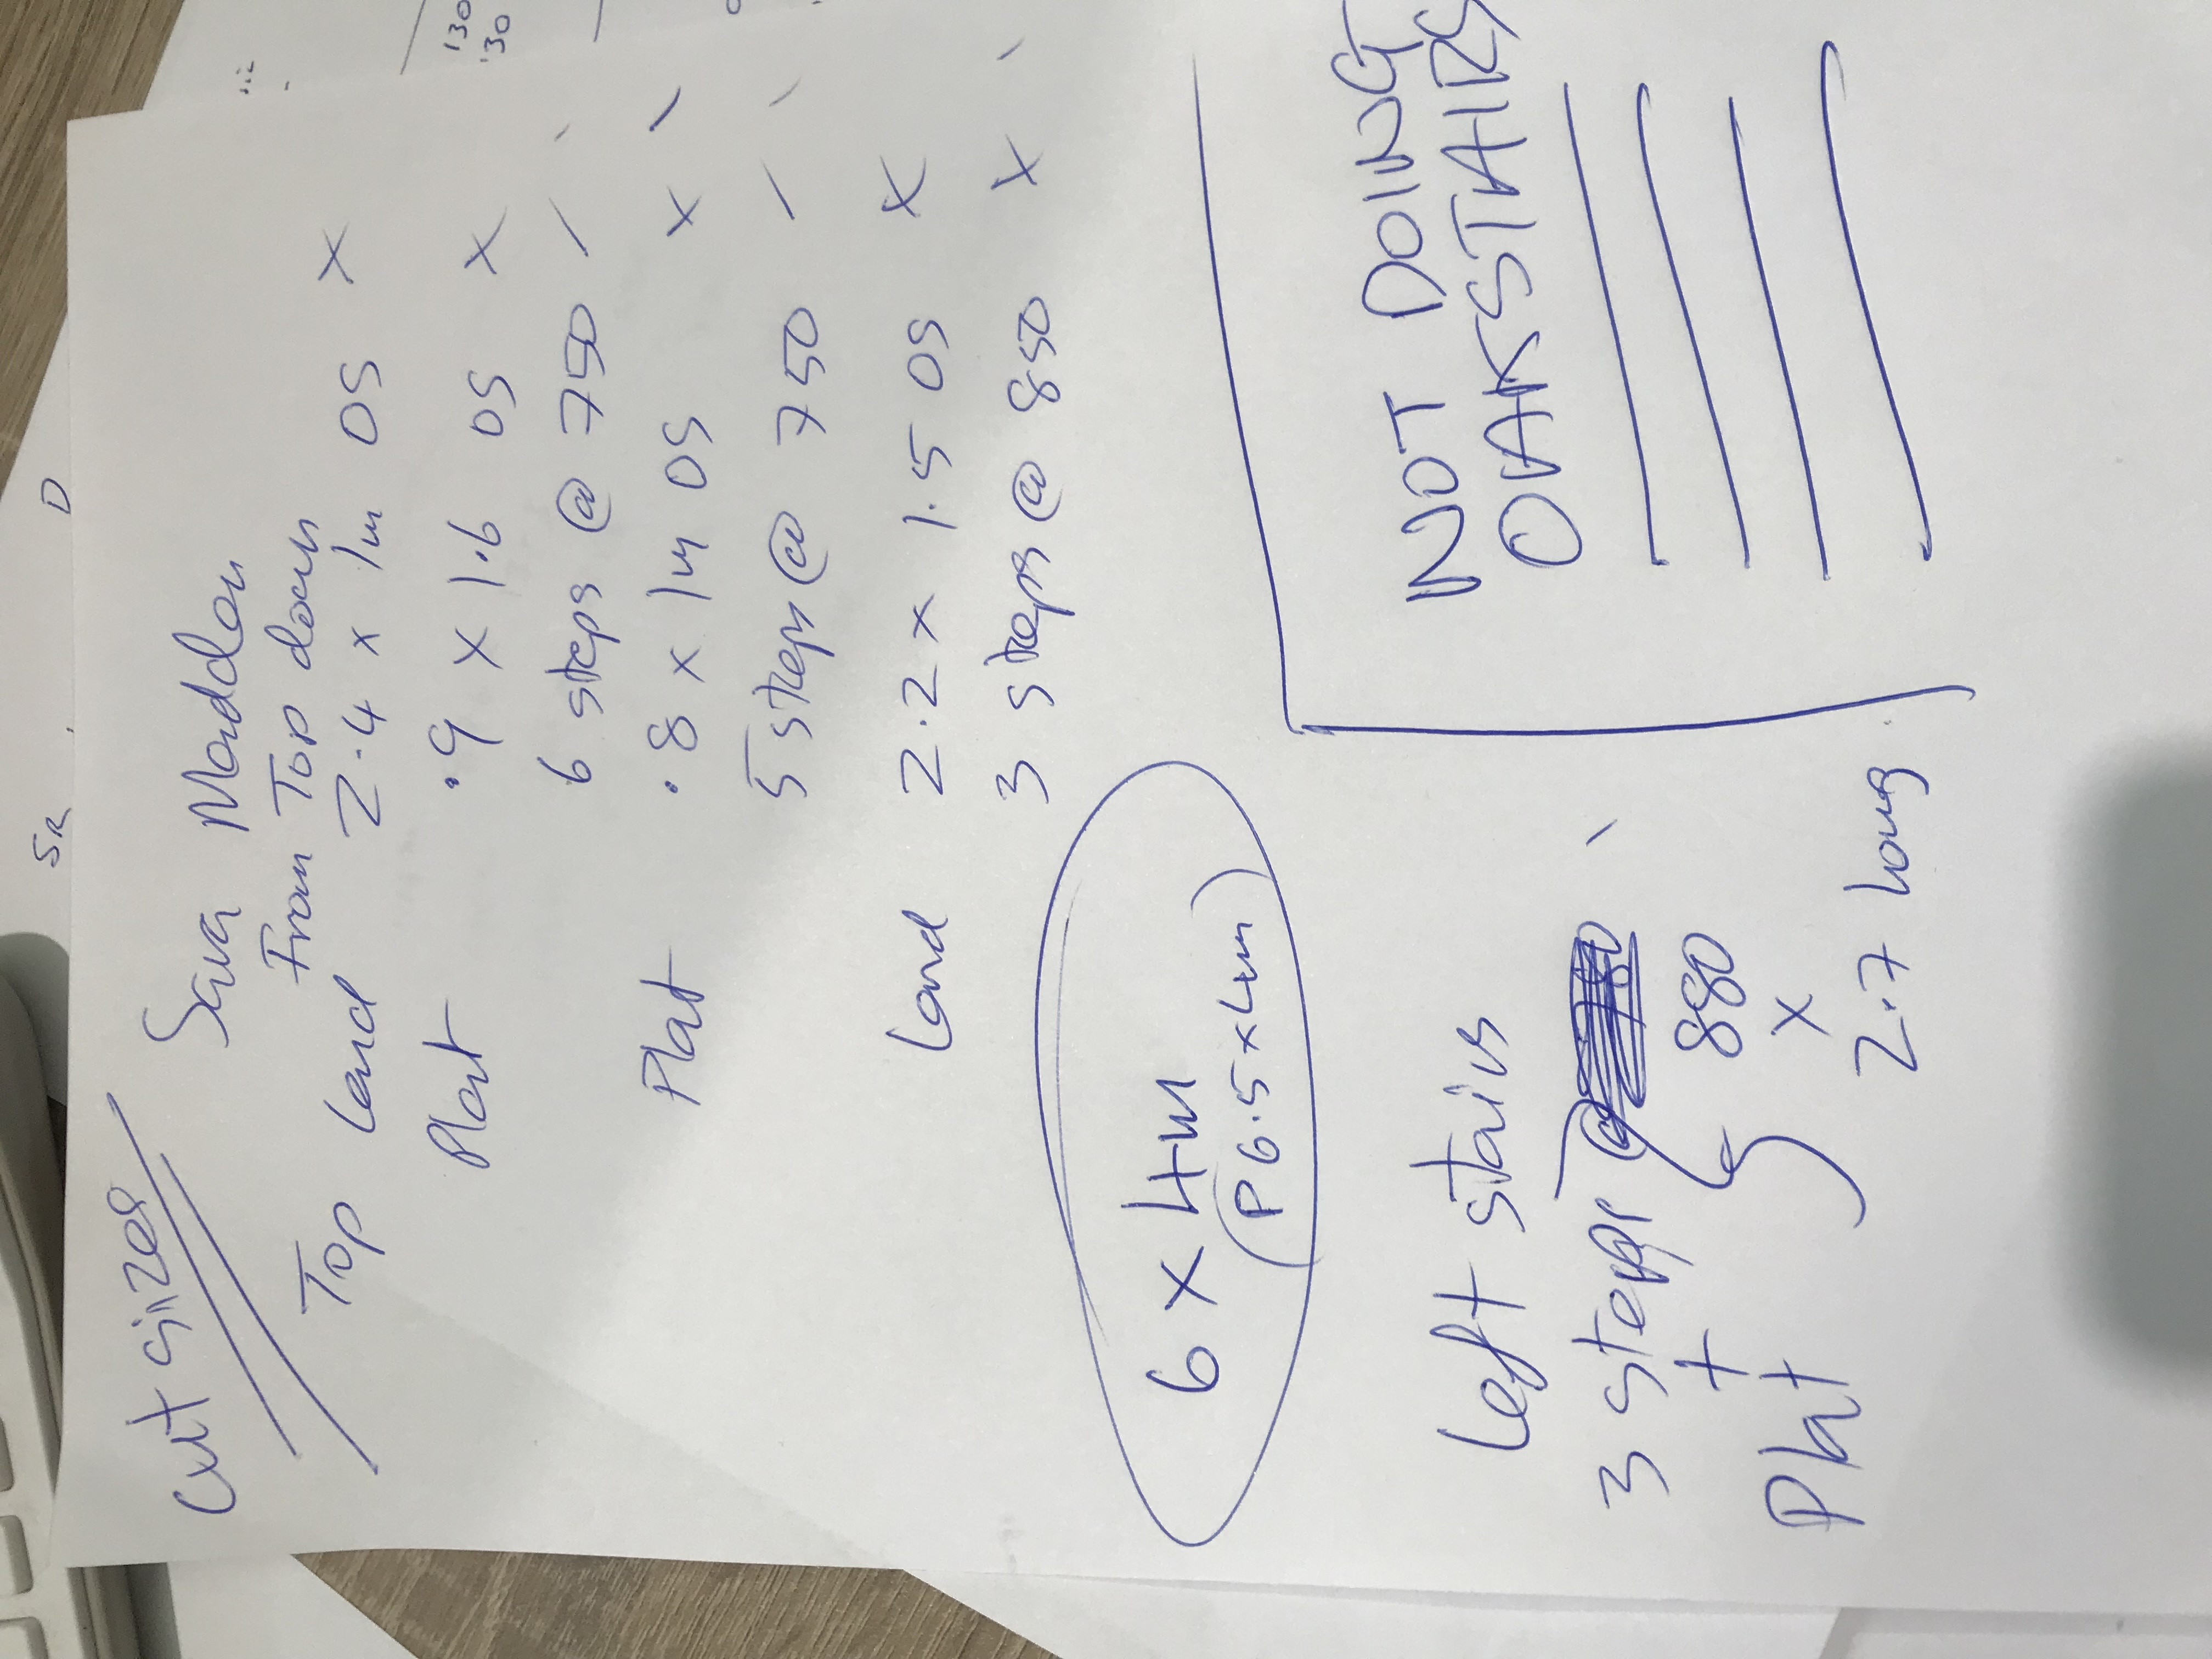 Cut sizes
Sara Madden
From Top down
Top Land 2.4 x 1m OS X
Plat .9 x 1.6 OS X
6 steps @ 750 /
Plat .8 x 1m OS X \
5 steps @ 750 /
Land 2.2 x 1.5 OS X
3 steps @ 850 X
6 x 4m
(P 6.5 x 4m)
NOT DOING
OAK STAIRS
Left stairs
3 steps @
+ 880
Plat x
2.7 long
SR D
130
130